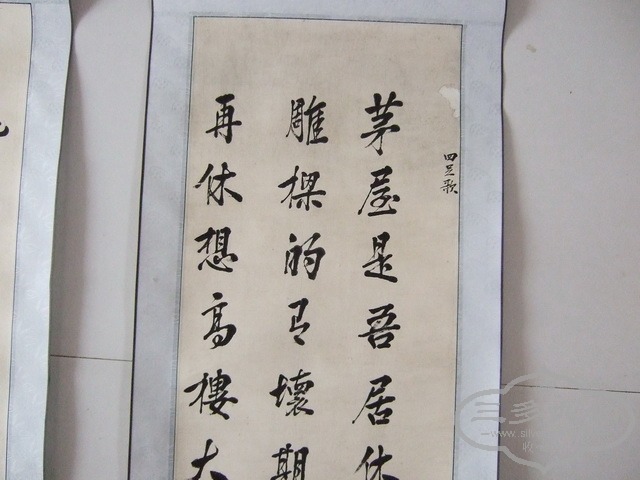 四足歌
茅屋是吾居休
雕樑的有壞期
再休想高樓大
三多